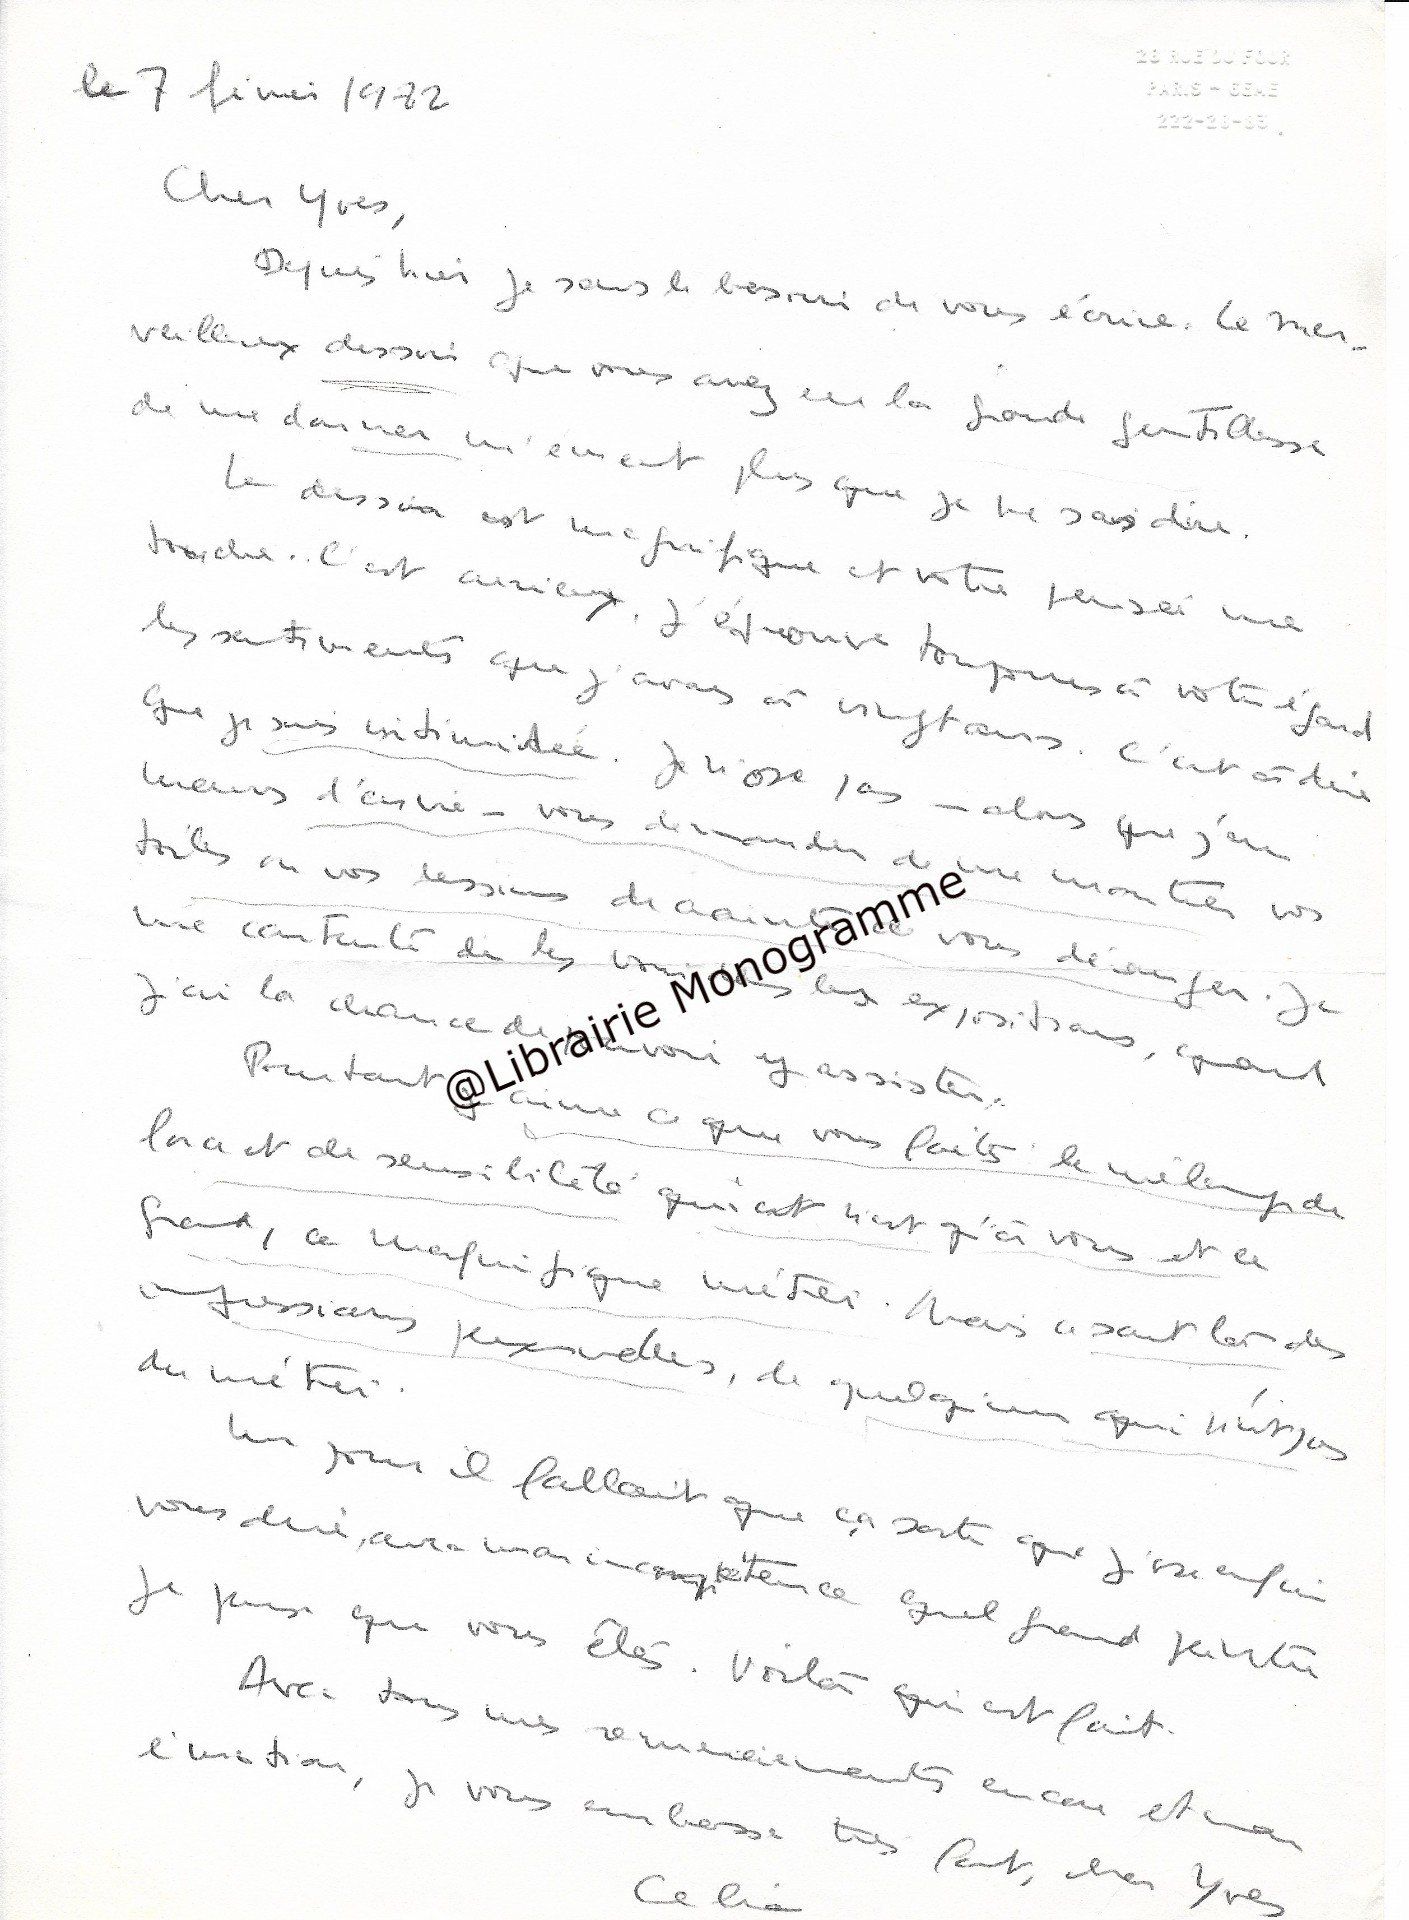 26 RUE DU FOUR
PARIS - 6EME
222-26-63
le 7 février 1972
Cher Yves,
Depuis hier je sens le besoin de vous écrire. Le mer-
veilleux dessin que vous avez eu la grande gentillesse
de me donner m'émeut plus que je ne sais dire.
Le dessin est magnifique et votre pensée me
touche. C'est curieux. J'éprouve toujours à votre égard
les sentiments que j'avais à vingt ans. C'est à dire
que je suis intimidée. Je n'ose pas – alors que j'en
meurs d'envie – vous demander de me montrer vos
toiles ou vos dessins de crainte de vous déranger. Je
me contente de les voir dans les expositions, quand
j'ai la chance de pouvoir y assister.
Pourtant j'aime ce que vous faites le mélange de
force et de sensibilité qui est n'est qu'à vous et ce
grand, ce magnifique métier. Mais ce sont là des
impressions personnelles, de quelqu'un qui n'est pas
du métier.
Un jour il fallait que ça sorte que j'ose enfin
vous dire, avec mon incompétence quel grand peintre
je pense que vous êtes. Voilà qui est fait.
Avec tous mes remerciements encore et mon
émotion, je vous embrasse très fort, cher Yves
Celia
@Librairie Monogramme